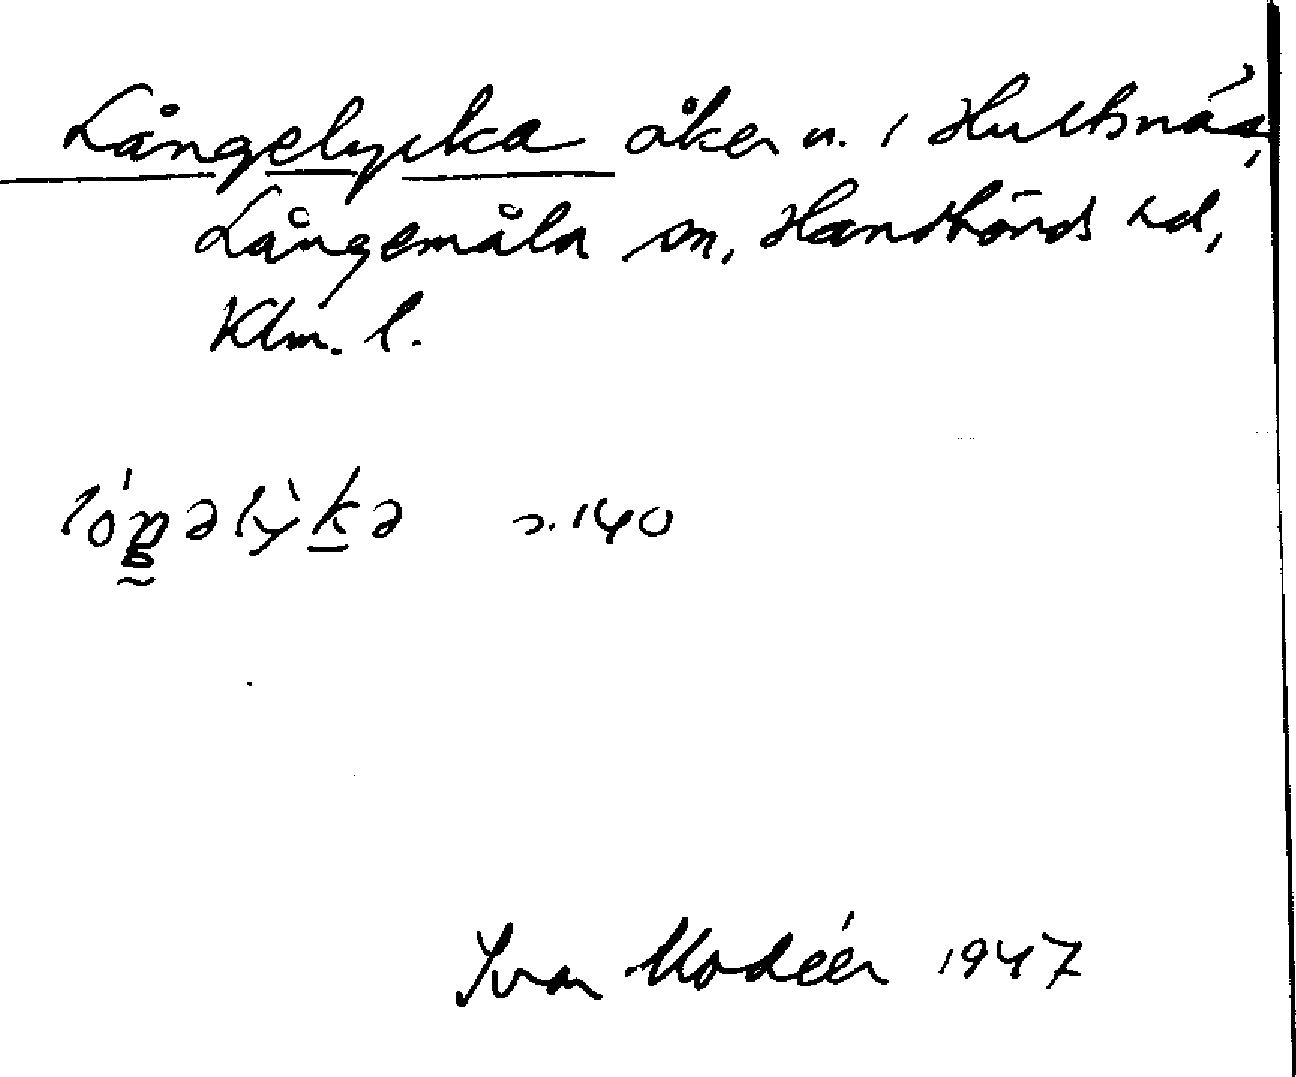 Långelycka åker n. i Hultsnäs,
Långemåla sn, Handbörds hd,
Klm. l.
lóŋəlỳkə 2.140
Ivar Modéer 1947